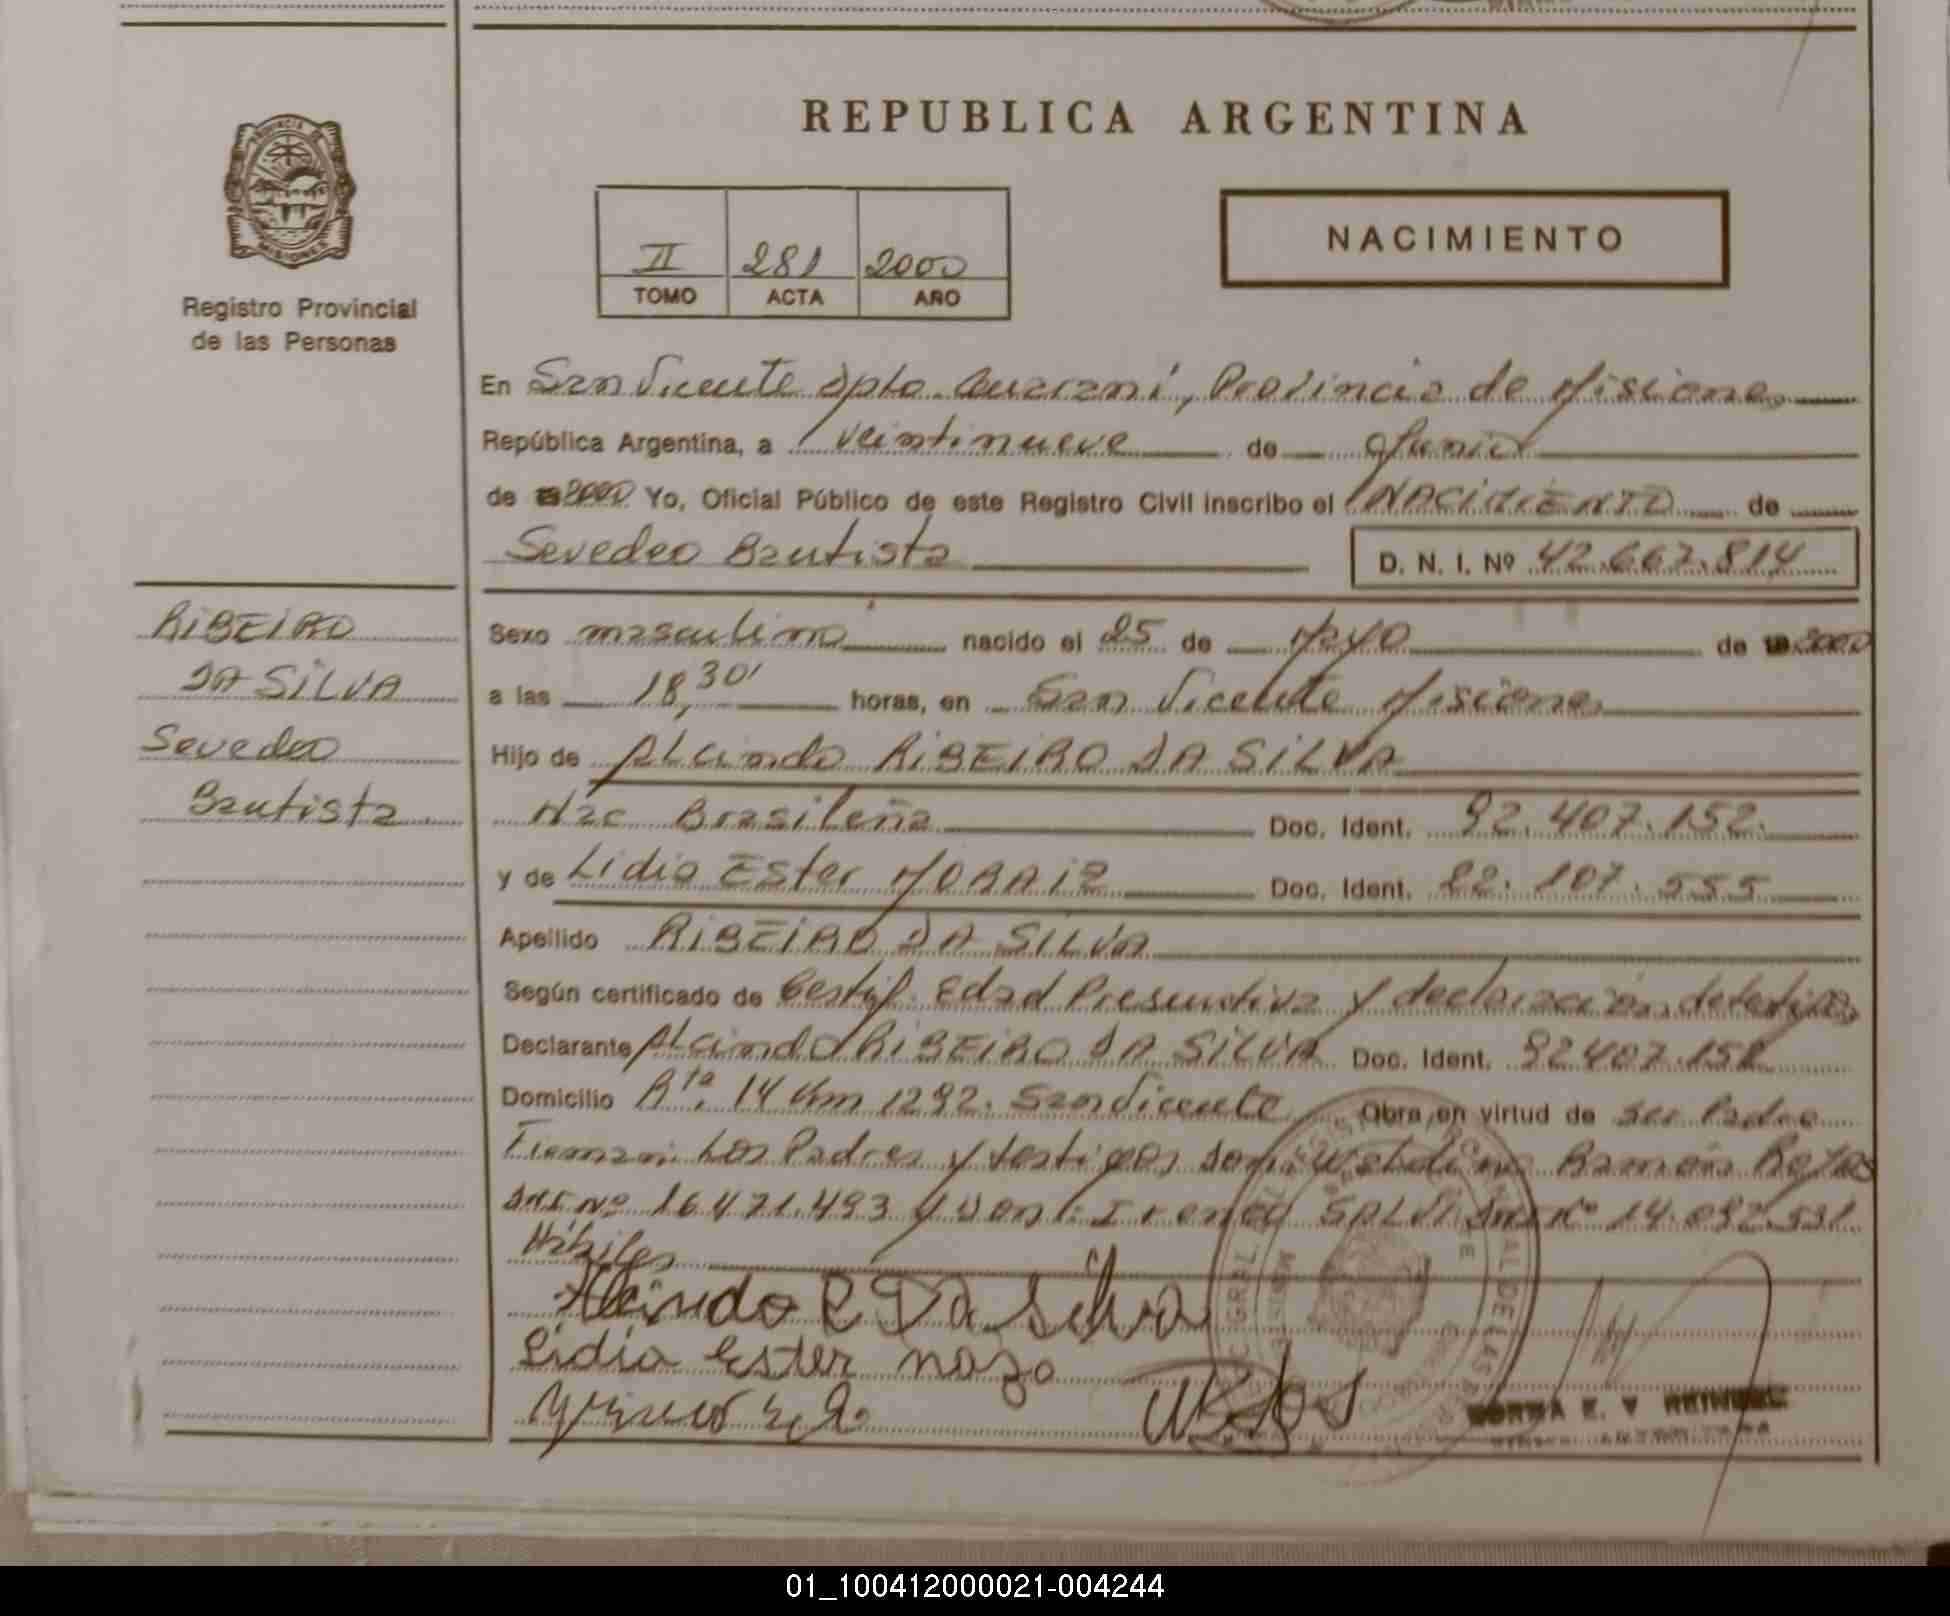 REPUBLICA ARGENTINA
PROVINCIA DE
MISIONES
Registro Provincial
de las Personas
II 281 2000
TOMO ACTA AÑO
NACIMIENTO
En San Vicente Dpto. Guaraní, Provincia de Misiones
República Argentina, a veintinueve de Junio
de 2000 Yo, Oficial Público de este Registro Civil inscribo el NACIMIENTO de
Sevedeo Bautista
D. N. I. Nº 42.667.814
RIBEIRO
DA SILVA
Sevedeo
Bautista
Sexo masculino nacido el 25 de Mayo de 2000
a las 18,30' horas, en San Vicente Misiones
Hijo de Alcindo RIBEIRO DA SILVA
Nac Brasileña Doc. Ident. 92.407.152.
y de Lidia Ester Doc. Ident. 22.107.555
Apellido RIBEIRO DA SILVA
Según certificado de Certif. Edad Presuntiva y declaración de testigos
Declarante Alcindo RIBEIRO DA SILVA Doc. Ident. 92407.152
Domicilio Rta. 14 Km 1292. San Vicente Obra en virtud de ser Padre
Firman: Los Padres y testigos Don: Ramón
DNI Nº 16.471.493 y Don: Ireneo DNI Nº 14.092.591
Hábiles
Alcindo R Da Silva
Lidia Ester
NORMA E. V
01_100412000021-004244